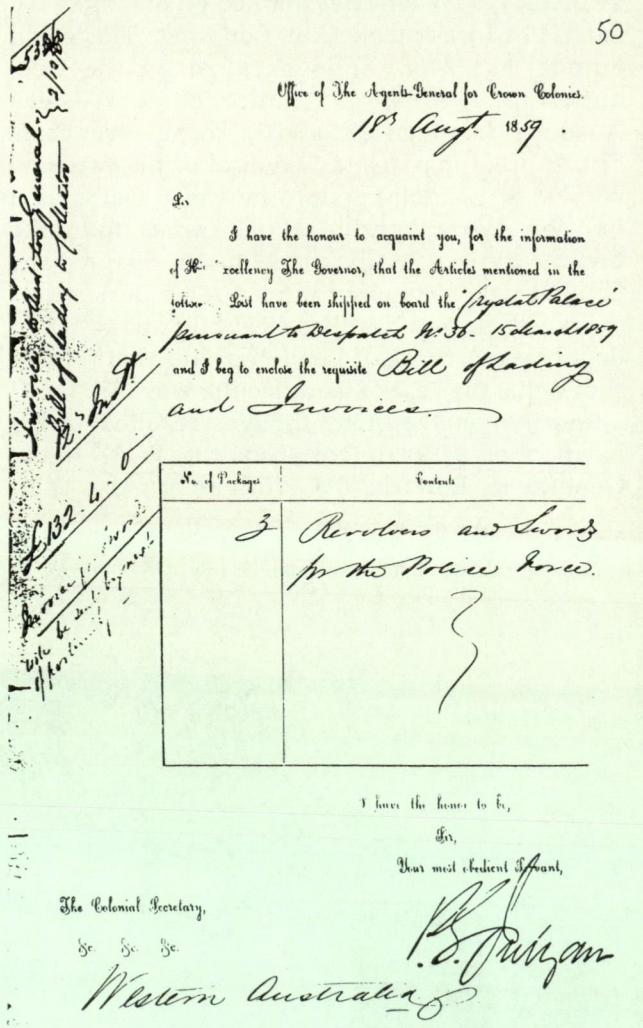 50
Office of The Agents-General for Crown Colonies.
18th Augt. 1859.
Sir
I have the honour to acquaint you, for the information
of His xcellency The Governor, that the Articles mentioned in the
List have been shipped on board the "Crystal Palace"
pursuant to Despatch No. 36 - 15 March 1859
and I beg to enclose the requisite Bill of Lading
and Invoices
No. of Packages Contents
3 Revolvers and Swords
for the Police Force.
I have the honor to be,
Sir,
Your most obedient Servant,
The Colonial Secretary,
&c. &c. &c.
Western Australia
Invoice to Auditor General
Bill of Lading to Collector
£132.4.0
Invoice
will be sent by next